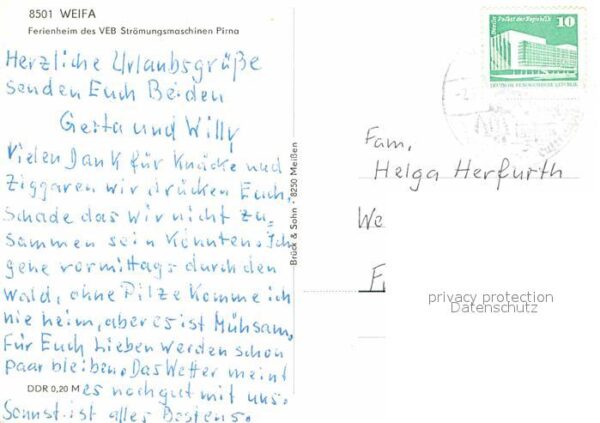 8501 WEIFA
Ferienheim des VEB Strömungsmaschinen Pirna
Herzliche Urlaubsgrüße
senden Euch Beiden
Gerta und Willy
Vielen Dank für Knäcke und
Ziggaren wir drücken Euch,
schade das wir nicht zu=
sammen sein könnten. Ich
gene vormittags durch den
Wald, ohne Pilze komme ich
nie heim, aber es ist Mühsam,
Für Euch Lieben werden schon
paar bleiben. Das Wetter meint
es noch gut mit uns.
Sonnst ist alles Bestens.
DDR 0,20 M
Brück & Sohn · 8250 Meißen
Berlin Palast der Republik
10
DEUTSCHE DEMOKRATISCHE REPUBLIK
Fam.
Helga Herfurth
We
privacy protection
Datenschutz